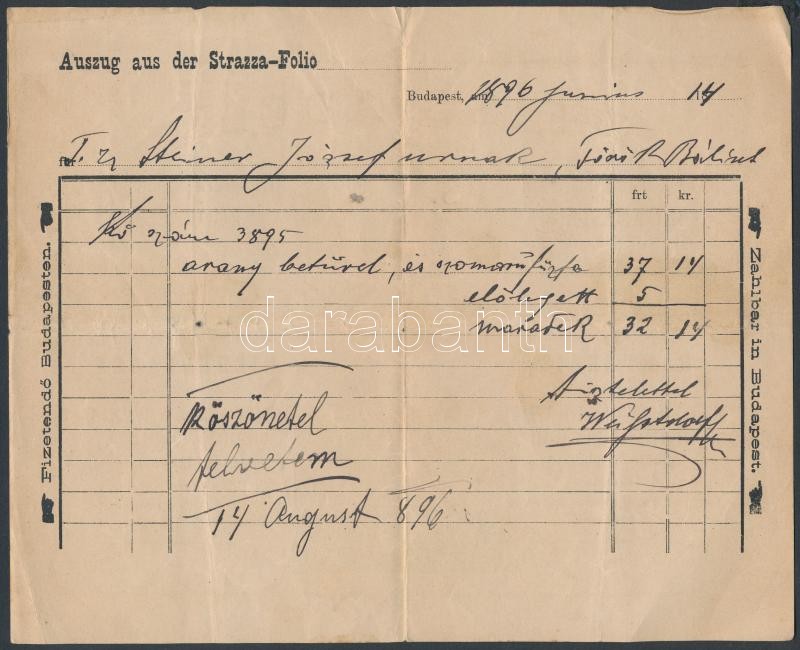 Auszug aus der Strazza-Folio
Budapest, am 1896 Junius 14
für T. cz Steiner József urnak, Török Bálint
frt kr.
Kő szám 3895
arany betűvel, és szomorúfűzfa 37 14
előlegett 5
maradék 32 14
tisztelettel
köszönetel
felvetem
14 August 896
Fizetendő Budapesten.
Zahlbar in Budapest.
darabanth